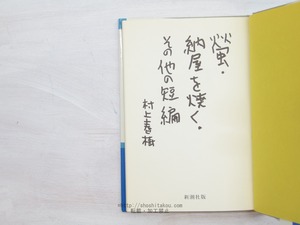 螢・
納屋を焼く・
その他の短編
村上春樹
新潮社版
http://shoshitaikou.com
転載・加工禁止